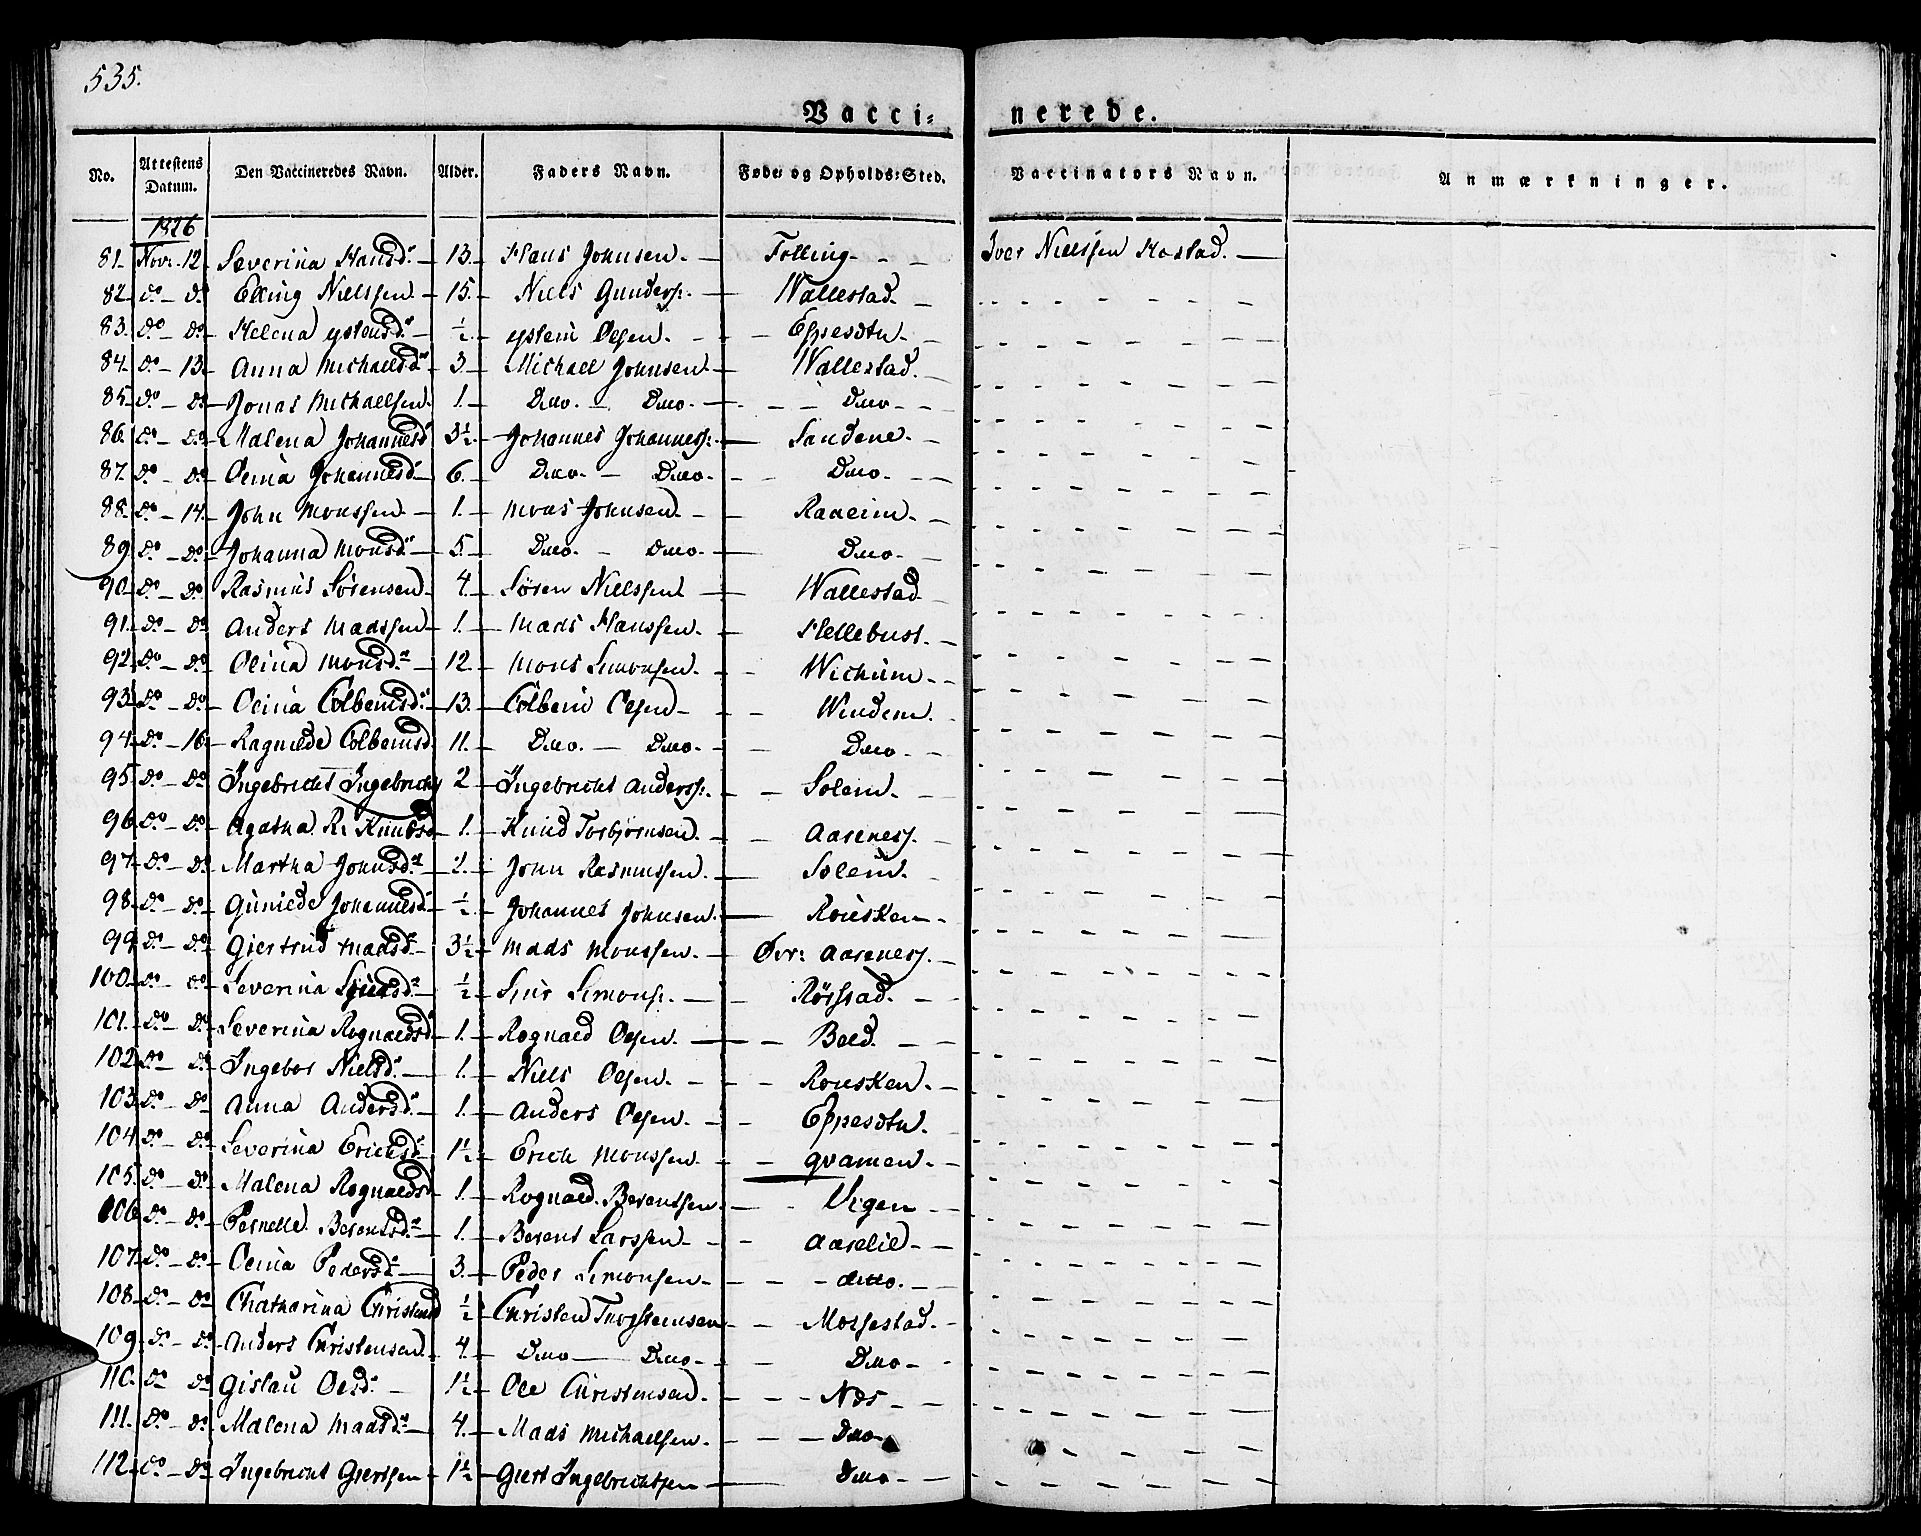 535.
Vacci- nerede.
No. Attestens Datum. Den Vaccineredes Navn. Alder. Faders Navn. Føde- og Opholds-Sted. Vaccinators Navn. Anmærkninger.
1826
81. Novr. 12. Severina Hansd. 13. Hans Johnsen. Tolling. Iver Nielssen Kostad.
82. do do Elling Nielssen. 15. Niels Gunders: Wallestad.
83. do do Helena ystensd. ½. ystein Olsen. Espesæter
84. do 13. Anna Michaelsd. 3. Michael Johnsen. Wallestad.
85. do do Jonas Michaelsen. 1. Ditto. Ditto. Ditto
86. do do Malena Johannesd. 3½. Johannes Johannes: Sandene.
87. do do Olina Johannesd. 6. Ditto. Ditto. Ditto.
88. do 14. John Monssen. 1. Mons Johnsen. Raaeim.
89. do do Johanna Monsd. 5. Ditto. Ditto. Ditto.
90. do do Rasmus Sørensen. 4. Søren Nielssen Wallestad
91. do do Anders Madssen 1. Mads Hanssen. Hellebust.
92. do do Olina Monsd. 12. Mons Simonsen. Wichum.
93. do do Olina Colbeinsd. 13. Colbein Olsen Windem.
94. do 16. Ragnilde Colbeinsd. 11. Ditto. Ditto. Ditto.
95. do do Ingebricht Ingebrichts 2 Ingebricht Anders: Solem.
96. do do Agatha R: Knudsd 1. Knud Torbjørnsen. Aarenes.
97. do do Martha Johnsd. 2. John Rasmussen. Solem.
98. do do Gunilde Johannesd. ½. Johannes Johnsen. Rousken.
99. do do Giertrud Madsd. 3½ Mads Monssen. Øvr: Aarenes.
100. do do Severina Siursd. ½ Siur Simons: Rørstad.
101. do do Severina Rognaldsd 1. Rognald Olsen. Bold.
102. do do Ingebor Nielsd. 1. Niels Olsen. Rousken.
103. do do Anna Andersd. 1. Anders Olsen. Espesætu.
104. do do Severina Erichsd. 1½ Erich Monssen. Qvamen.
105. do do Malena Rognaldsd 1. Rognald. Berentsen. Vigen
106. do do Pernelle Berentsd. 1. Berent Larssen. Aarelid
107. do do Olina Pedersd. 3. Peder Simonsen. ditto.
108. do do Chatharina Christensd ½ Christen Torstensen Molsestad.
109. do do Anders Christensen. 4. Ditto Ditto Ditto
110. do do Gislau Olsd. 1½ Ole Christensen. Næs
111. do do Malena Madsd. 4. Mads Michaelsen. Ditto
112. do do Ingebricht Giertsen 1½ Giert Ingebrichtsen Ditto